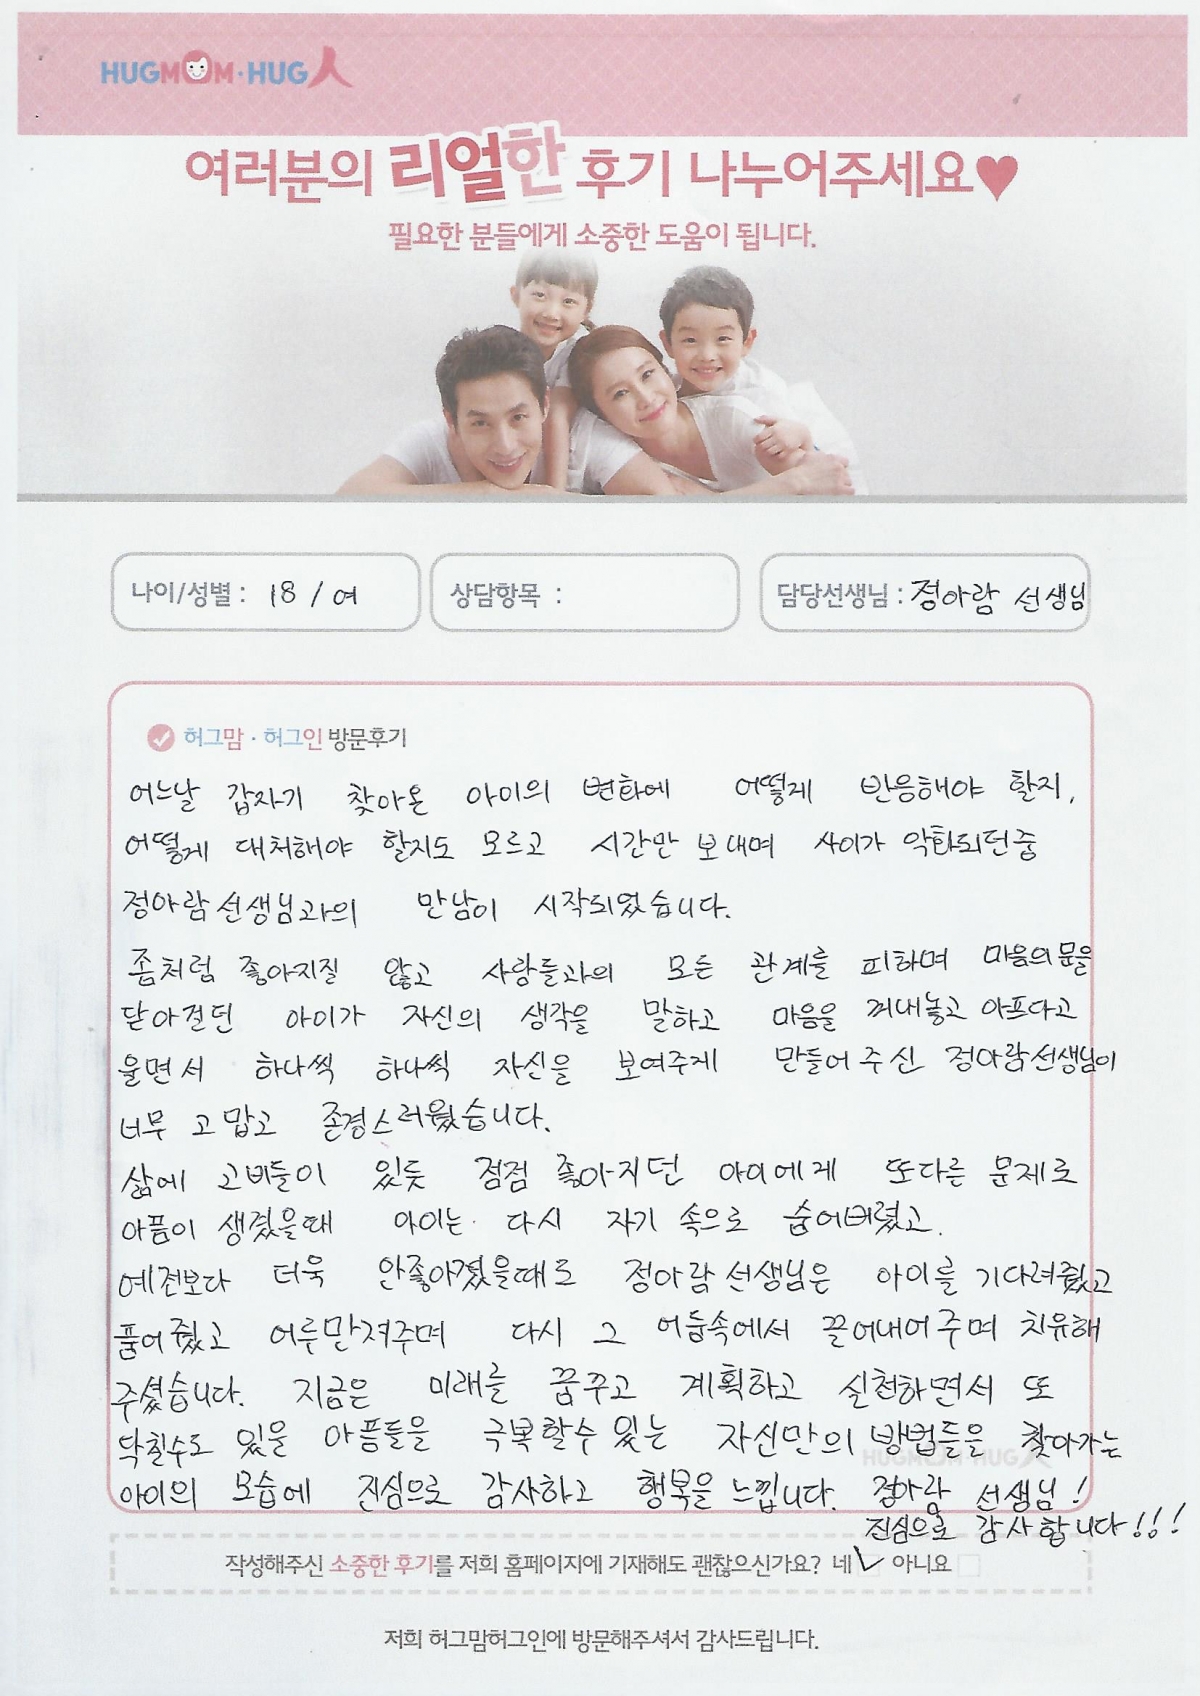 HUGMOM·HUG人
여러분의 리얼한 후기 나누어주세요♥
필요한 분들에게 소중한 도움이 됩니다.
나이/성별 : 18 / 여
상담항목 :
담당선생님 : 정아람 선생님
허그맘 · 허그인 방문후기
어느날 갑자기 찾아온 아이의 변화에 어떻게 반응해야 할지,
어떻게 대처해야 할지도 모르고 시간만 보내며 사이가 악화되던중
정아람선생님과의 만남이 시작되었습니다.
좀처럼 좋아지질 않고 사람들과의 모든 관계를 피하며 마음의 문을
닫아걸던 아이가 자신의 생각을 말하고 마음을 꺼내놓고 아프다고
울면서 하나씩 하나씩 자신을 보여주게 만들어 주신 정아람선생님이
너무 고맙고 존경스러웠습니다.
삶에 고비들이 있듯 점점 좋아지던 아이에게 또다른 문제로
아픔이 생겼을때 아이는 다시 자기 속으로 숨어버렸고.
예전보다 더욱 안좋아졌을때도 정아람선생님은 아이를 기다려줬고
품어줬고 어루만져주며 다시 그 어둠속에서 끌어내어주며 치유해
주셨습니다. 지금은 미래를 꿈꾸고 계획하고 실천하면서 또
닥칠수도 있을 아픔들을 극복할수 있는 자신만의 방법들을 찾아가는
HUGMOM·HUG人
아이의 모습에 진심으로 감사하고 행복을 느낍니다. 정아람 선생님!
진심으로 감사합니다!!!
작성해주신 소중한 후기를 저희 홈페이지에 기재해도 괜찮으신가요? 네 아니요
저희 허그맘허그인에 방문해주셔서 감사드립니다.